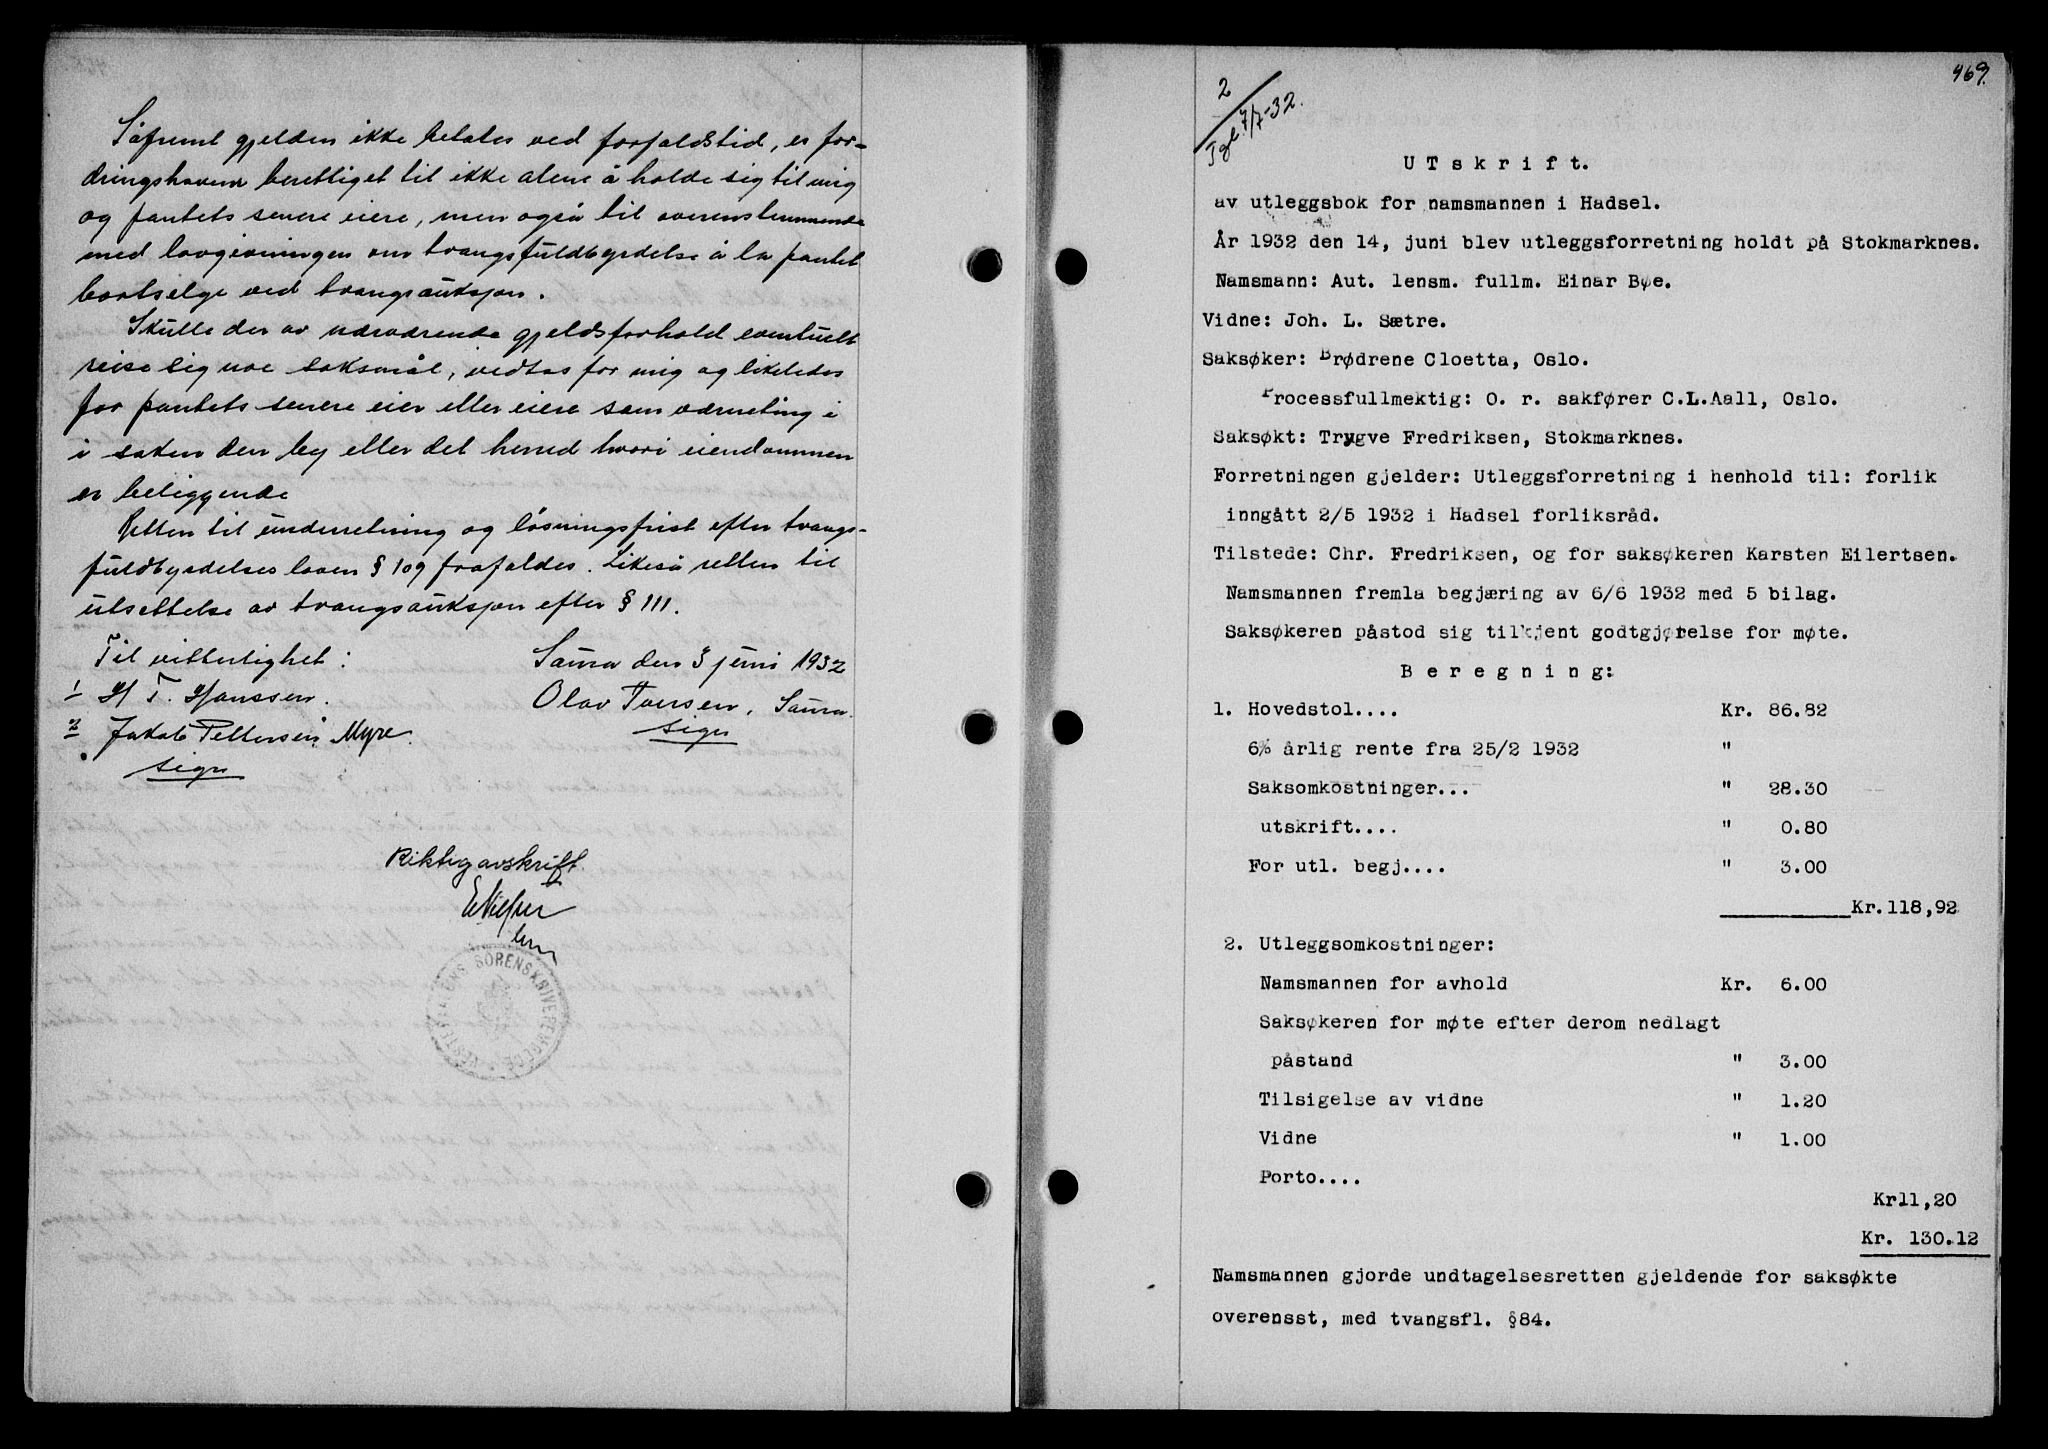 Såfremt gjelden ikke betales ved forfaldstid, er for-
dringshaveren berettiget til ikke alene å holde sig til mig
og pantets senere eiere, men også til overensstemmende
med lovgivningen om tvangsfuldbyrdelse å la pantet
bortselge ved tvangsauksjon.
Skulle der av nærværende gjeldsforhold eventuelt
reise sig noe søksmål, vedtas for mig og likeledes
for pantets senere eier eller eiere som verneting i
i saken den by eller det herred hvori eiendommen
er beliggende
Retten til underretning og løsningsfrist efter tvangs-
fuldbyrdelses loven § 109 frafaldes. Likeså retten til
utsettelse av tvangsauksjon efter § 111.
Til vitterlighet: Saura den 3 juni 1932
1 H T. Hanssen. Olav Iversen, Saura.
2 Jakob Pettersen, Myre. sign
sign
Riktig avskrift.
SORENSKRIVEREMBEDE
469.
2
Tgl. 7/7-32.
UTskrift.
av utleggsbok for namsmannen i Hadsel.
År 1932 den 14, juni blev utleggsforretning holdt på Stokmarknes.
Namsmann: Aut. lensm. fullm. Einar Bøe.
Vidne: Joh. L. Sætre.
Saksøker: Brødrene Cloetta, Oslo.
Processfullmektig: O. r. sakfører C.L.Aall, Oslo.
Saksøkt: Trygve Fredriksen, Stokmarknes.
Forretningen gjelder: Utleggsforretning i henhold til: forlik
inngått 2/5 1932 i Hadsel forliksråd.
Tilstede: Chr. Fredriksen, og for saksøkeren Karsten Eilertsen.
Namsmannen fremla begjæring av 6/6 1932 med 5 bilag.
Saksøkeren påstod sig tilkjent godtgjørelse for møte.
Beregning:
1. Hovedstol.... Kr. 86.82
6% årlig rente fra 25/2 1932 "
Saksomkostninger... " 28.30
utskrift.... " 0.80
For utl. begj.... " 3.00
Kr.118,92
2. Utleggsomkostninger:
Namsmannen for avhold Kr. 6.00
Saksøkeren for møte efter derom nedlagt
påstand " 3.00
Tilsigelse av vidne " 1.20
Vidne " 1.00
Porto....
Kr11,20
Kr. 130.12
Namsmannen gjorde undtagelsesretten gjeldende for saksøkte
overensst, med tvangsfl. §84.